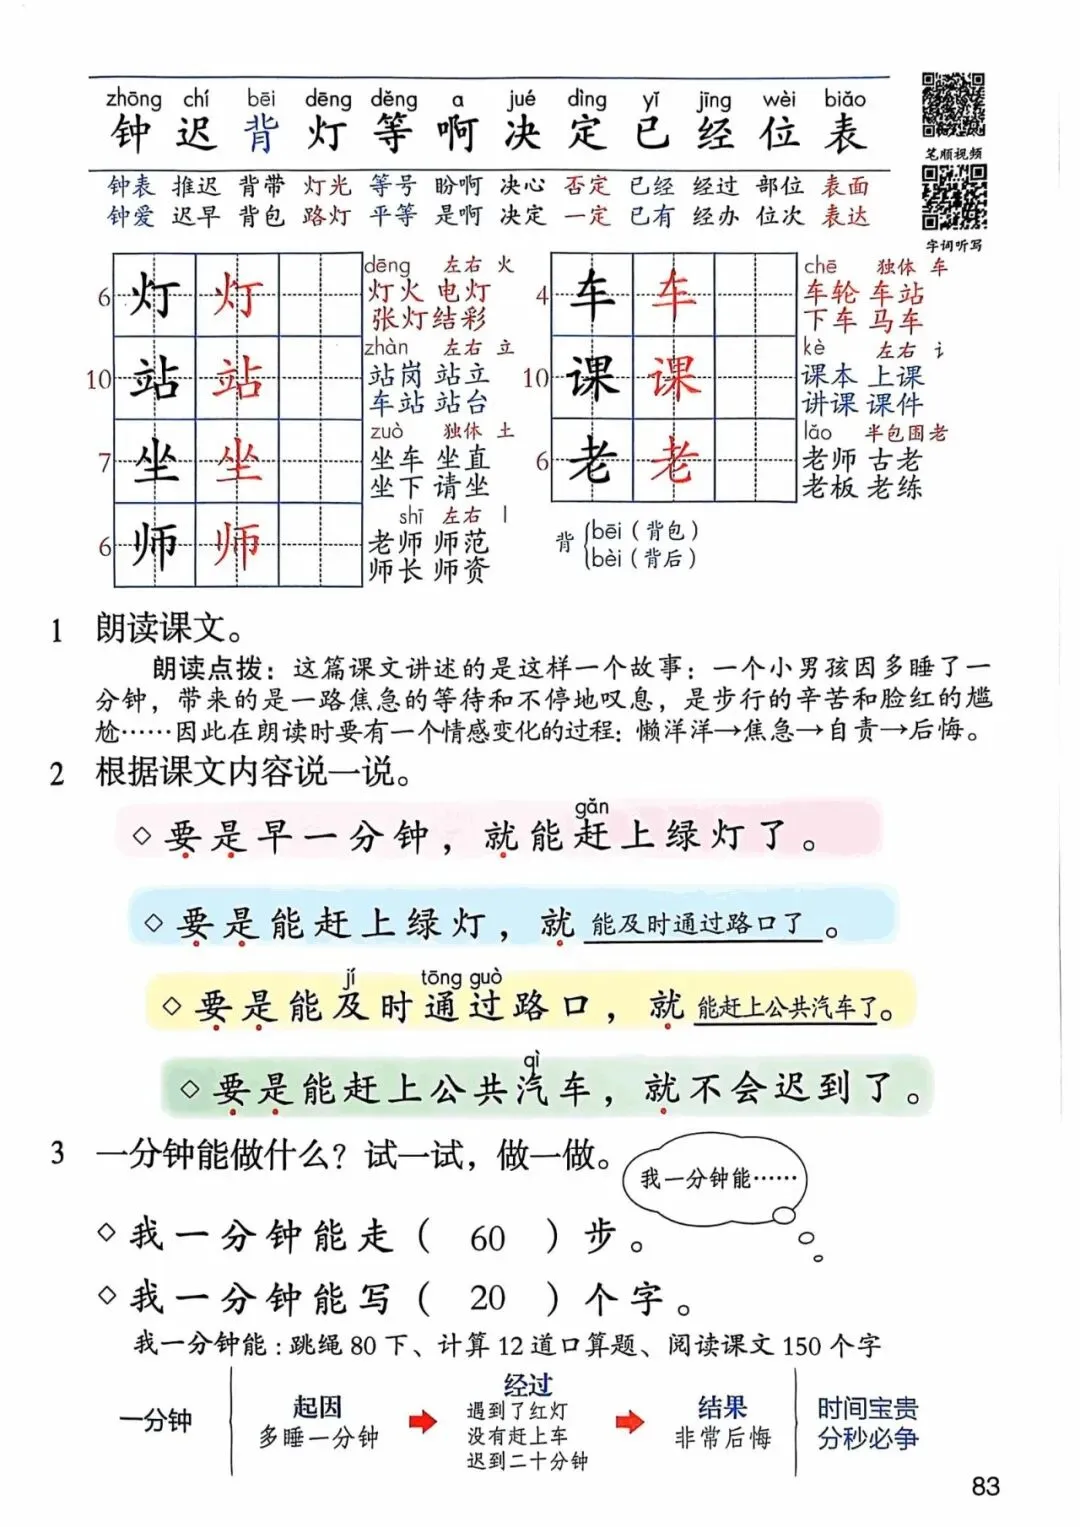 zhōng chí bēi dēng děng a jué dìng yǐ jīng wèi biǎo
钟 迟 背 灯 等 啊 决 定 已 经 位 表
笔顺视频
钟表 推迟 背带 灯光 等号 盼啊 决心 否定 已经 经过 部位 表面
钟爱 迟早 背包 路灯 平等 是啊 决定 一定 已有 经办 位次 表达
字词听写
6 灯 灯
dēng 左右 火
灯火 电灯
张灯结彩
10 站 站
zhàn 左右 立
站岗 站立
车站 站台
7 坐 坐
zuò 独体 土
坐车 坐直
坐下 请坐
6 师 师
shī 左右 丨
老师 师范
师长 师资
4 车 车
chē 独体 车
车轮 车站
下车 马车
10 课 课
kè 左右 讠
课本 上课
讲课 课件
6 老 老
lǎo 半包围 老
老师 古老
老板 老练
背 { bēi（背包）
bèi（背后）
1 朗读课文。
朗读点拨：这篇课文讲述的是这样一个故事：一个小男孩因多睡了一
分钟，带来的是一路焦急的等待和不停地叹息，是步行的辛苦和脸红的尴
尬……因此在朗读时要有一个情感变化的过程：懒洋洋→焦急→自责→后悔。
2 根据课文内容说一说。
gǎn
◇ 要是早一分钟，就能赶上绿灯了。
◇ 要是能赶上绿灯，就 能及时通过路口了 。
jí tōng guò
◇ 要是能及时通过路口，就 能赶上公共汽车了。
qì
◇ 要是能赶上公共汽车，就不会迟到了。
3 一分钟能做什么？试一试，做一做。
我一分钟能……
◇ 我一分钟能走（ 60 ）步。
◇ 我一分钟能写（ 20 ）个字。
我一分钟能：跳绳80下、计算12道口算题、阅读课文150个字
一分钟
起因
多睡一分钟
经过
遇到了红灯
没有赶上车
迟到二十分钟
结果
非常后悔
时间宝贵
分秒必争
83